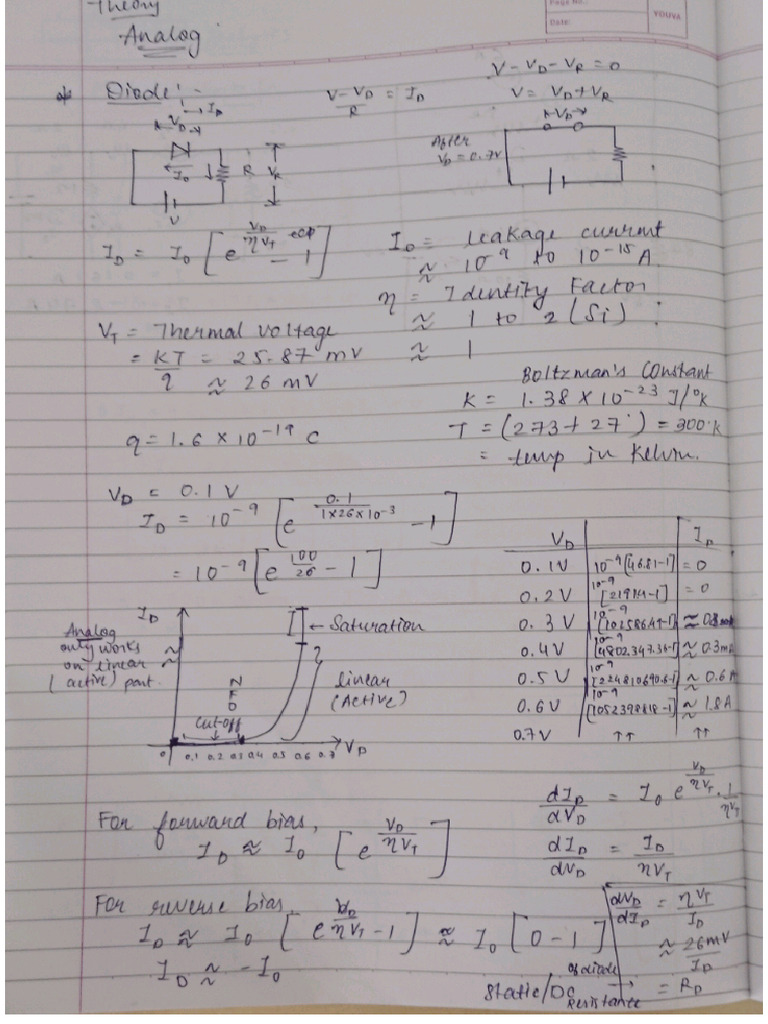 Theory
Page No.:
Date:
YOUVA
Analog
Diode :-
V-V_D/R = I_D
V - V_D - V_R = 0
V = V_D + V_R
→ I_D
V_D
I_D
R V_R
V
After
V_D = 0.7V
V_D
I_D = I_0 [e^(V_D/ηV_T) - 1]
I_0 = leakage current
≈ 10^-9 to 10^-15 A.
η = Identity Factor
≈ 1 to 2 (Si)
≈ 1
V_T = Thermal voltage
= KT/q = 25.87 mV
≈ 26 mV
Boltzman's Constant
K = 1.38 × 10^-23 J/°K
q = 1.6 × 10^-19 C
T = (273 + 27°) = 300°K
= temp in Kelvin.
V_D = 0.1 V
I_D = 10^-9 [e^(0.1/1×26×10^-3) - 1]
= 10^-9 [e^(100/26) - 1]
V_D I_D
0.1V 10^-9[46.81-1] = 0
0.2V 10^-9 = 0
0.3V 10^-9
0.4V 10^-9 ≈ 0.3mA
0.5V 10^-9 ≈ 0.6A
0.6V 10^-9 ≈ 1.8A
0.7V ↑↑ ↑↑
I_D
Analog
only works
on linear
(active) part.
← Saturation
linear
(Active)
Cut-off
0 0.1 0.2 0.3 0.4 0.5 0.6 0.7 V_D
dI_D/dV_D = I_0 e^(V_D/ηV_T) . 1/ηV_T
For forward bias,
I_D ≈ I_0 [e^(V_D/ηV_T)]
dI_D/dV_D = I_D/ηV_T
For reverse bias
I_D ≈ I_0 [e^(V_D/ηV_T) - 1] ≈ I_0 [0 - 1]
I_D ≈ -I_0
dV_D/dI_D = ηV_T/I_D
≈ 26mV/I_D
Static/DC Resistance of diode → = R_D